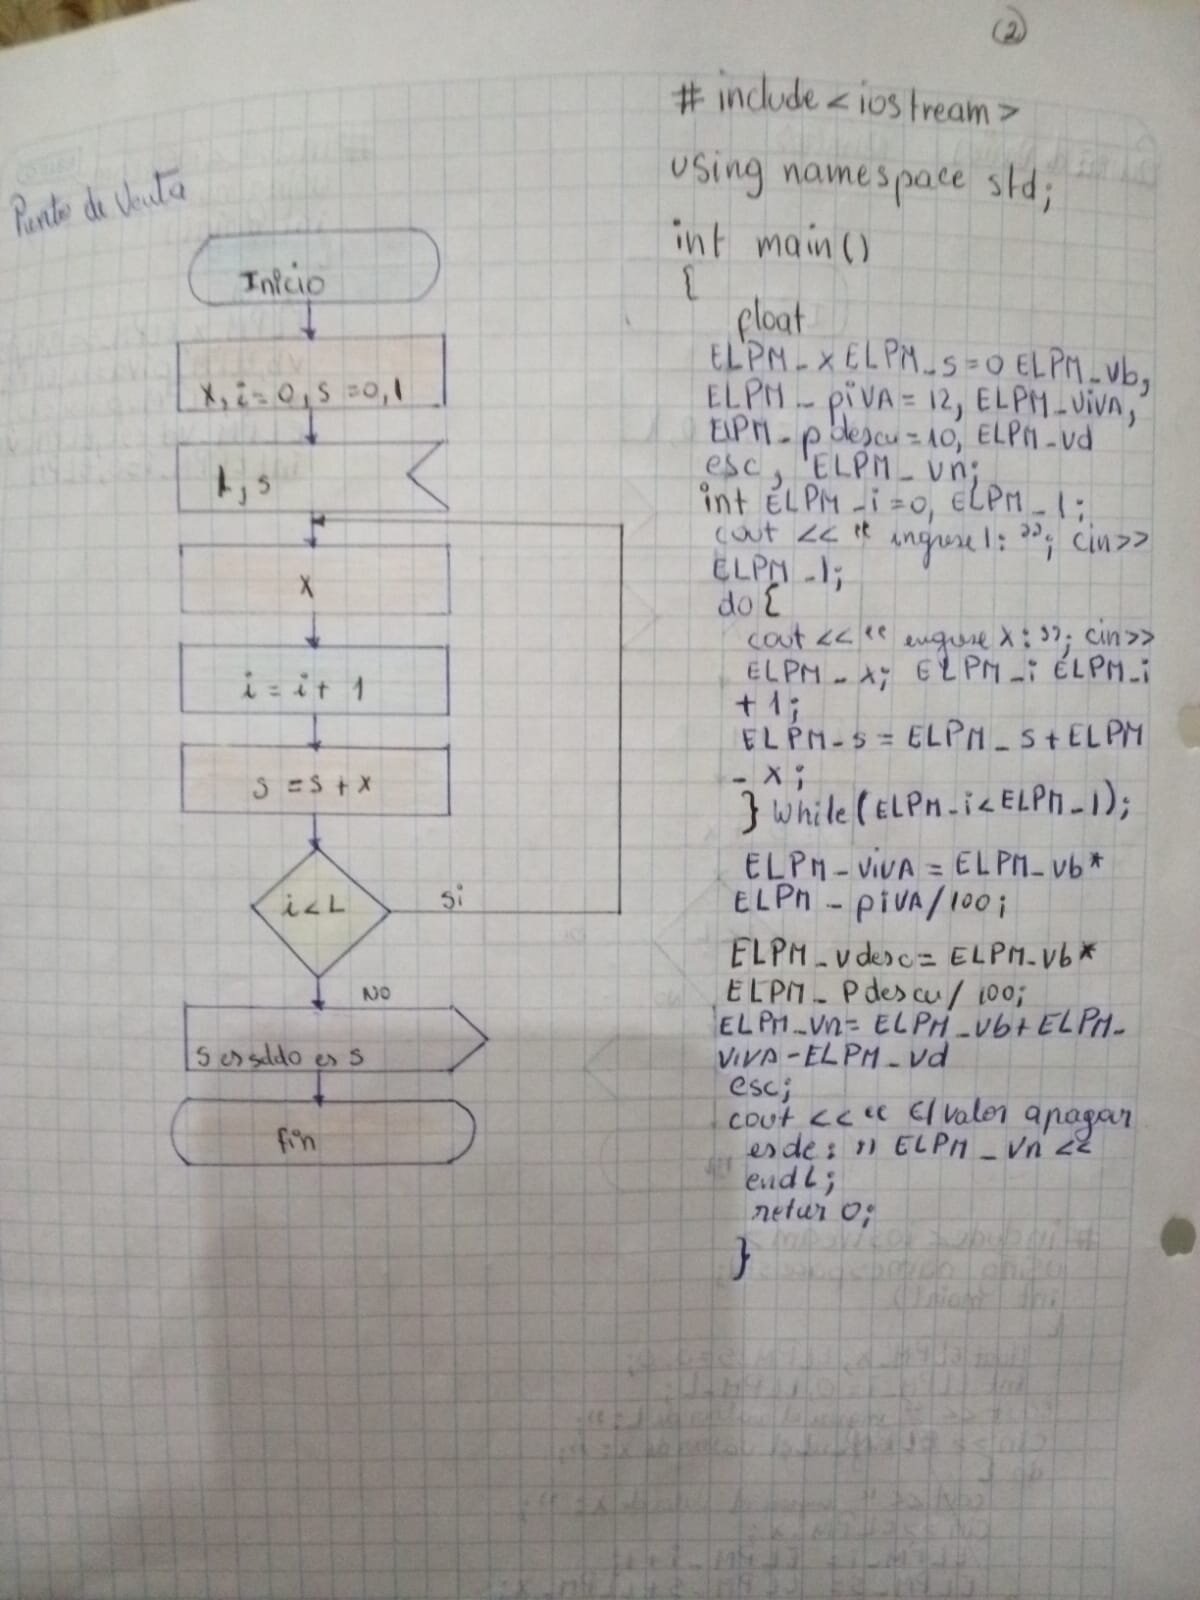 (2)
Punto de Venta
Inicio
x, i=0, s=0, l
L, s
x
i = i + 1
s = s + x
i < L
si
NO
s es sddo es s
fin
# include <iostream>
using namespace std;
int main()
{
float
ELPM_x ELPM_s=0 ELPM_vb,
ELPM_piVA=12, ELPM_viVA,
ElPM_pdescu=10, ELPM_vd
esc, ELPM_vn;
int ELPM_i=0, ELPM_l;
cout << "ingrese l: "; cin>>
ELPM_l;
do {
cout << "engrese x: "; cin>>
ELPM_x; ELPM_i ELPM_i
+ 1;
ELPM_s = ELPM_s + ELPM
_x;
} while (ELPM_i < ELPM_l);
ELPM_viVA = ELPM_vb*
ELPM_piVA/100;
ELPM_vdesc = ELPM_vb*
ELPM_Pdescu/100;
ELPM_vn= ELPM_vb+ELPM_
viVA-ELPM_vd
esc;
cout << "El valor apagar
es de: " ELPM_vn <<
endL;
retur 0;
}